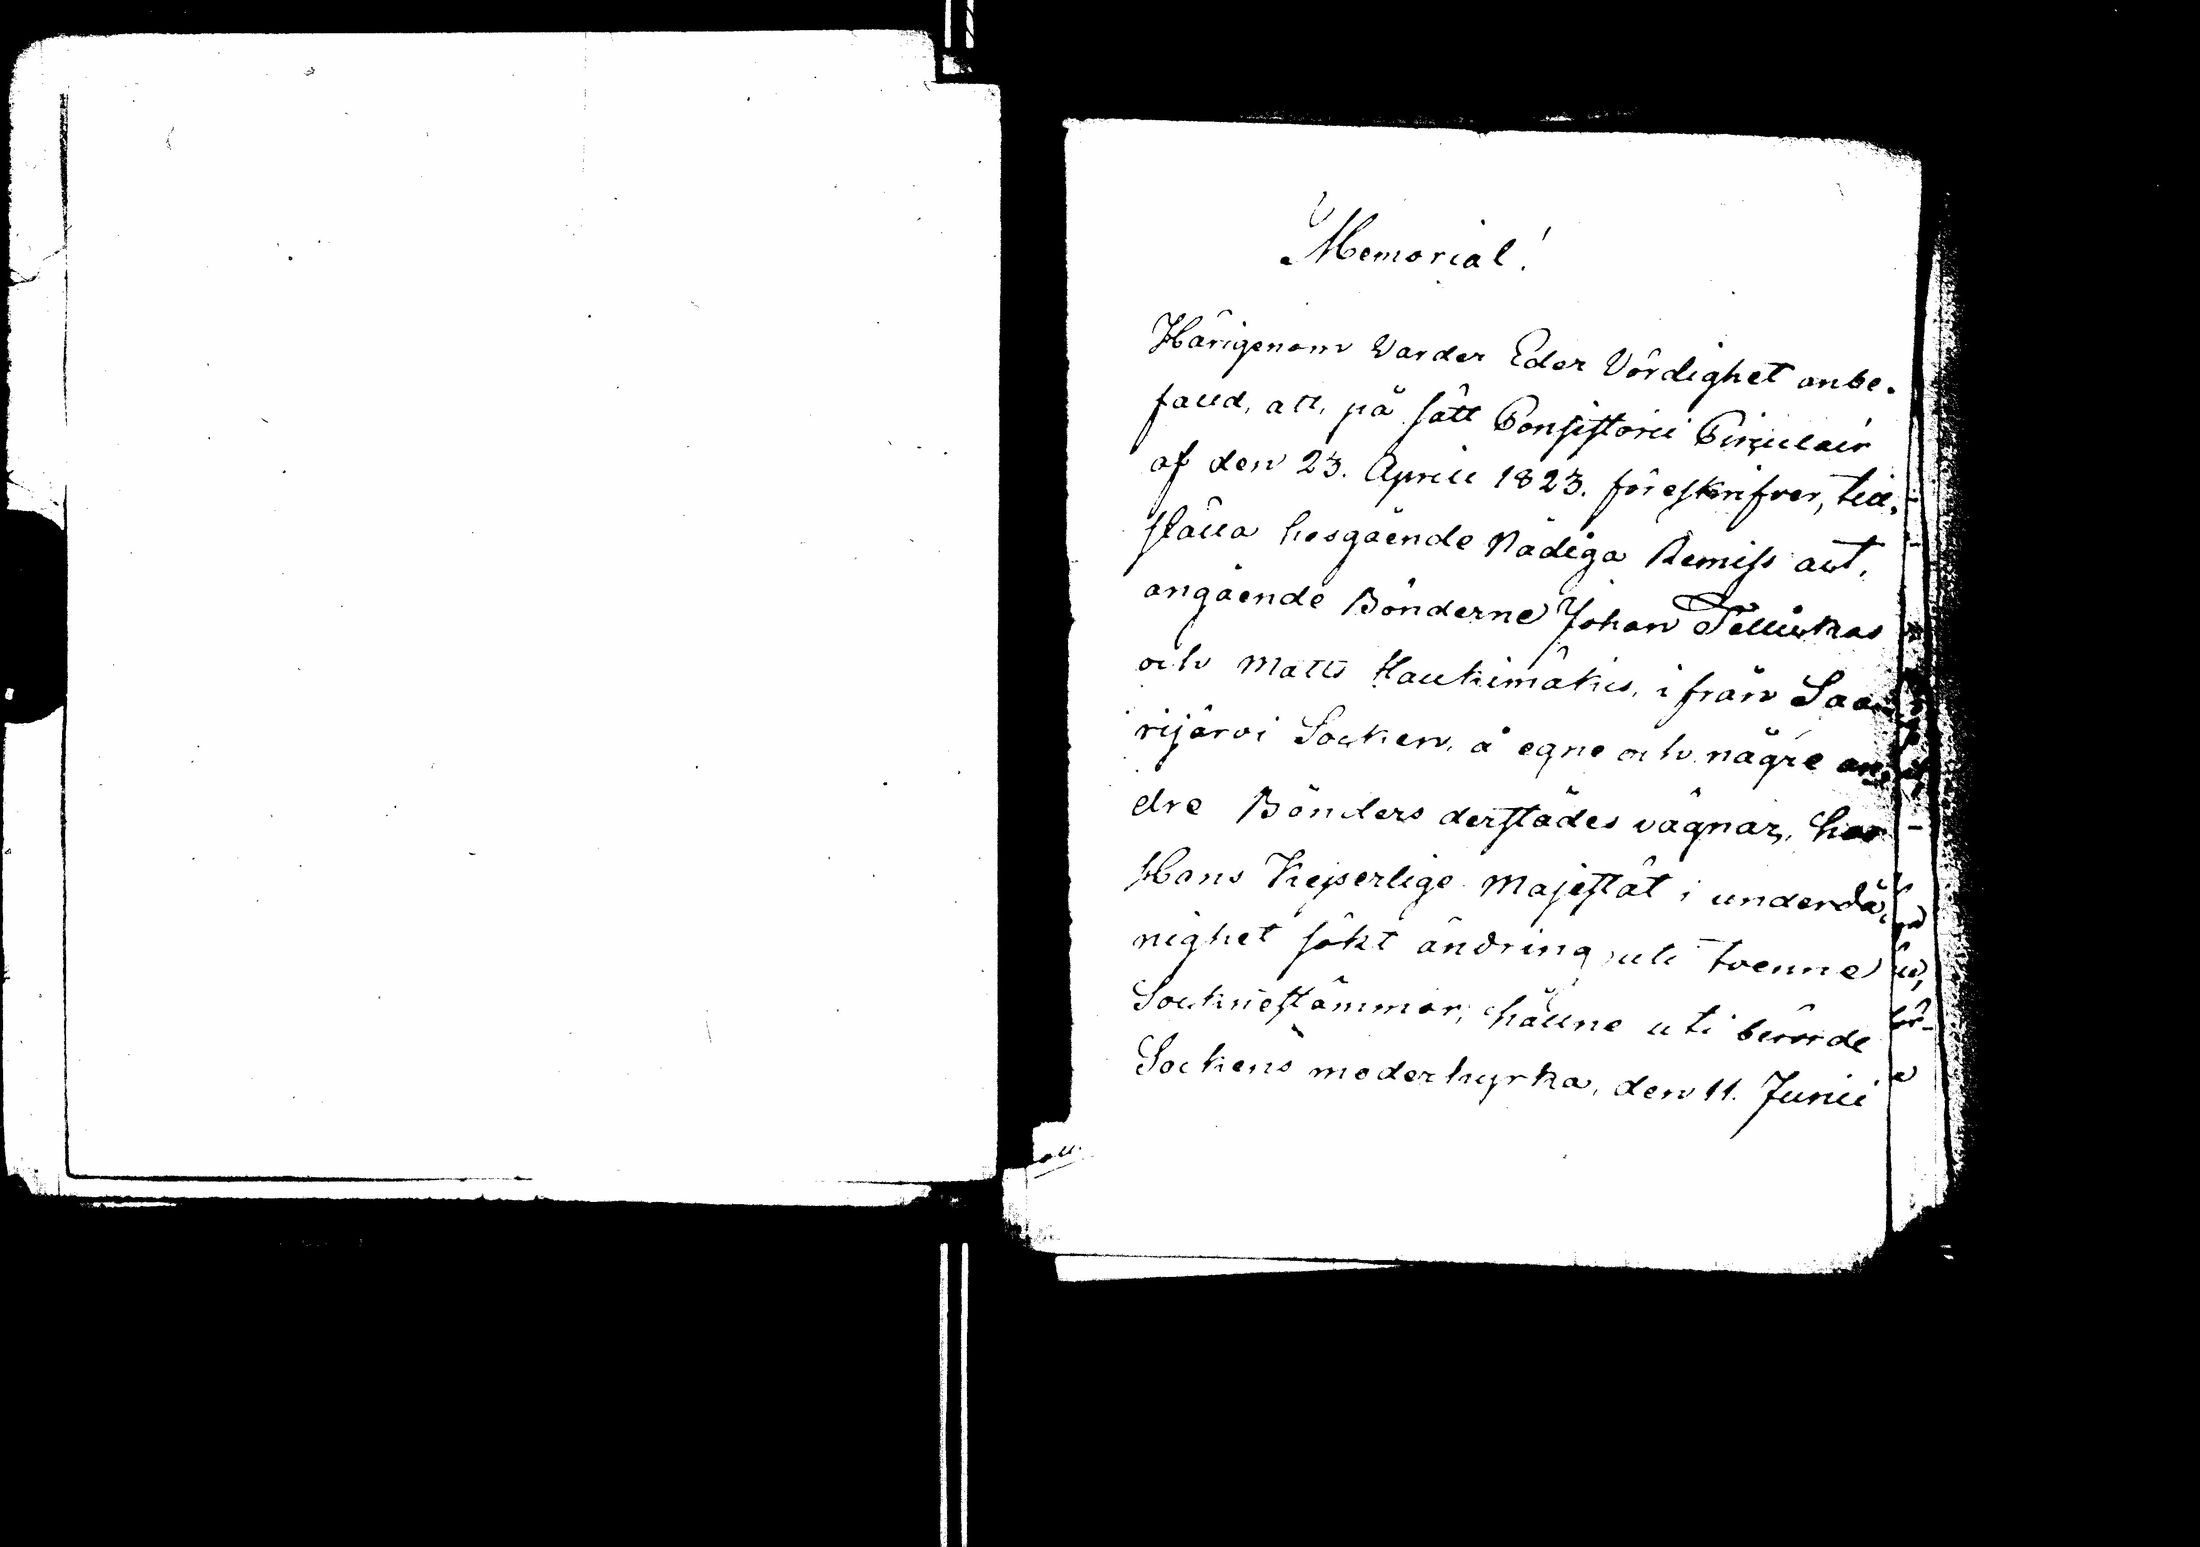 Memorial!
Härigenom varder Eder Vördighet anbe-
falld, att, på sätt Consistorii Circulair
af den 23. April 1823. föreskrifver, till-
ställa hosgående Nådiga Remiss act,
angående Bönderne Johan
och Matts Haukimäkis, ifrån Saa-
rijärvi Socken, å egne och någre an-
dre Bönders derstädes vägnar, hos
Hans Kejserlige Majestät i underdå-
nighet sökt ändring uti tvenne
Sockne stämmor, hållne uti berörde
Sockens moderkyrka, den 11. Junii